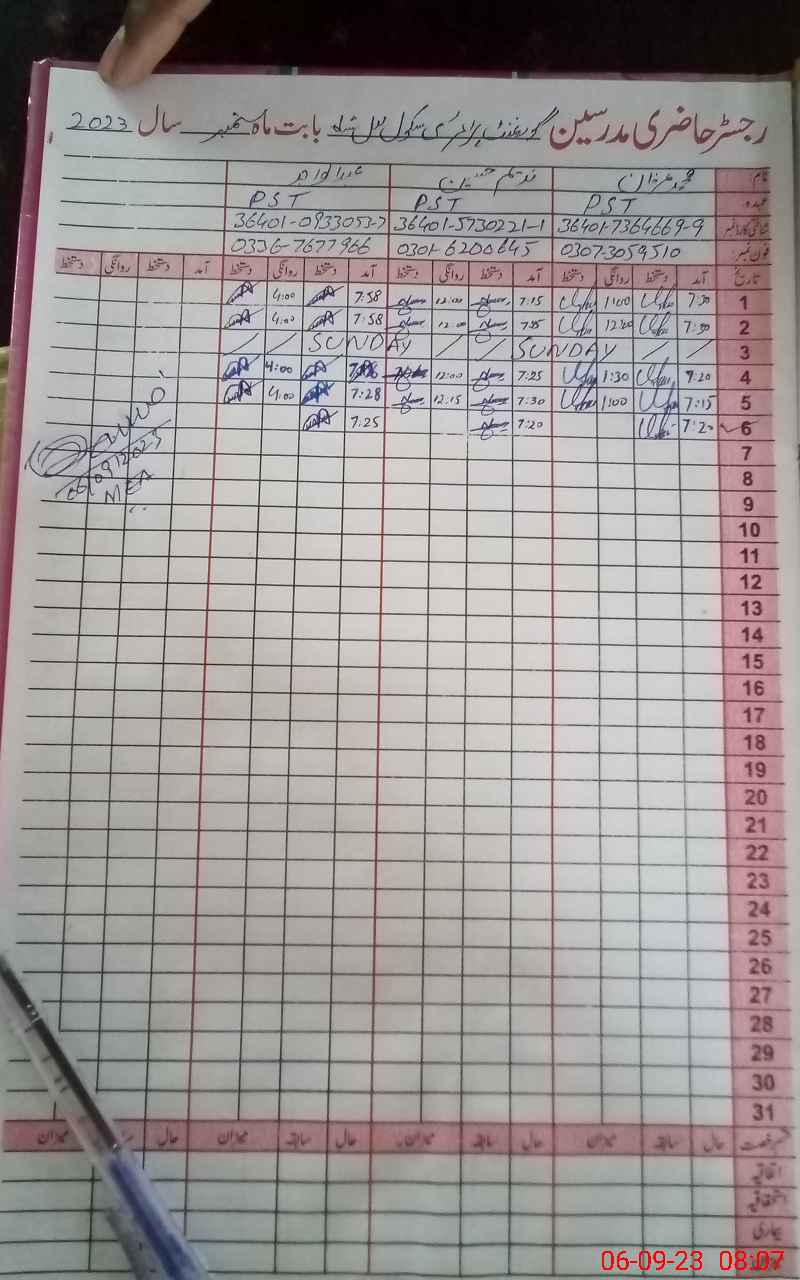 رجسٹر حاضری مدرسین گورنمنٹ پرائمری سکول بابت ماہ ستمبر سال 2023
نام: محمد عرفان ندیم حسین عبدالواحد
عہدہ PST PST PST
شناختی کارڈ نمبر 36401-7364669-9 36401-5730221-1 36401-0933053-7
فون نمبر: 0307-3059510 0301-6200645 0336-7677966
تاریخ آمد دستخط روانگی دستخط آمد دستخط روانگی دستخط آمد دستخط روانگی دستخط آمد دستخط روانگی دستخط
1 7:30 1:00 7:15 12:00 7:58 4:00
2 7:30 12:00 7:25 12:00 7:58 4:00
3 SUNDAY SUNDAY
4 7:20 1:30 7:25 12:00 4:00
5 7:15 1:00 7:30 12:15 7:28 4:00
6 7:20 7:20 7:25
06/09/2023
MEA
7
8
9
10
11
12
13
14
15
16
17
18
19
20
21
22
23
24
25
26
27
28
29
30
31
قسم رخصت حال سابقہ میزان حال سابقہ میزان حال سابقہ میزان حال میزان
اتفاقیہ
استحقاقیہ
بیماری
06-09-23 08:07